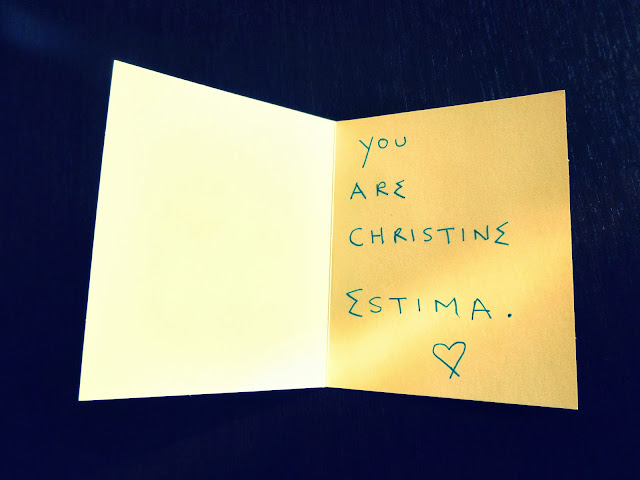 YOU
ARE
CHRISTINE
ESTIMA.